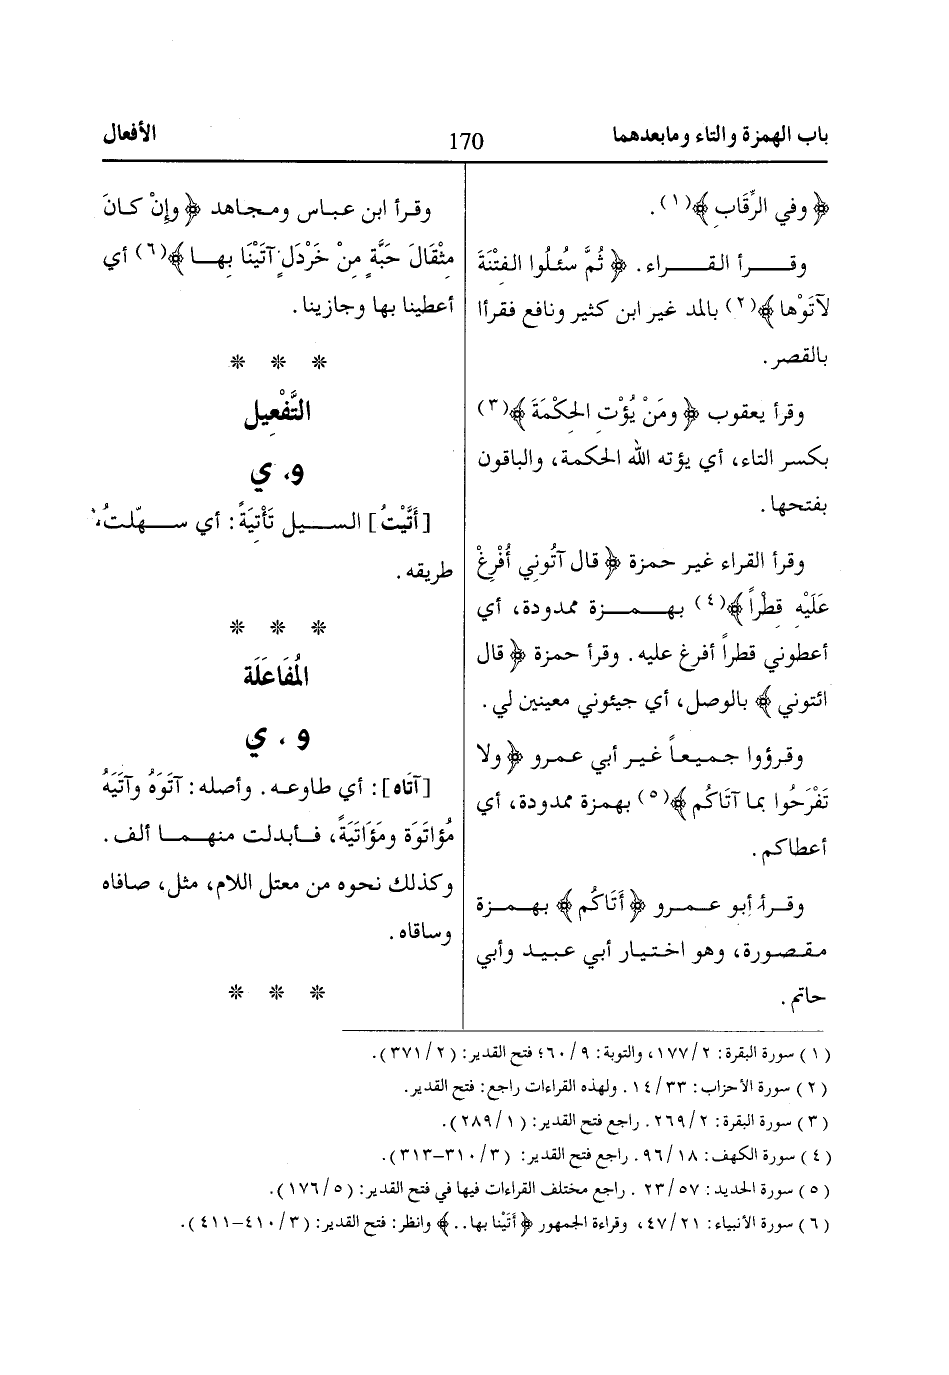 باب الهمزة والتاء ومابعدهما
170
الأفعال
﴿ وفي الرِّقَابِ ﴾(١).
وقـرأ القـراء. ﴿ ثُمَّ سئُلُوا الفِتْنَةَ
لآتَوْها ﴾(٢) بالمد غير ابن كثير ونافع فقرأا
بالقصر.
وقرأ يعقوب ﴿ ومَنْ يُؤْتِ الحِكْمَةَ ﴾(٣)
بكسر التاء، أي يؤته الله الحكمة، والباقون
بفتحها.
وقرأ القراء غير حمزة ﴿ قال آتُوني أُفْرِغْ
عَلَيْهِ قِطْراً ﴾(٤) بهمزة ممدودة، أي
أعطوني قطراً أفرغ عليه. وقرأ حمزة ﴿ قال
ائتوني ﴾ بالوصل، أي جيئوني معينين لي.
وقرؤوا جميعاً غير أبي عمرو ﴿ ولا
تَفْرَحُوا بما آتَاكُم ﴾(٥) بهمزة ممدودة، أي
أعطاكم.
وقرأ أبو عمرو ﴿ أَتَاكُم ﴾ بهمزة
مقصورة، وهو اختيار أبي عبيد وأبي
حاتم.
وقرأ ابن عباس ومجاهد ﴿ وإِنْ كانَ
مِثْقَالَ حَبَّةٍ مِنْ خَرْدَلٍ آتَيْنَا بها ﴾(٦) أي
أعطينا بها وجازينا.
* * *
التَّفْعِيل
و، ي
[أَتَّيْتُ] السيل تَأْتِيَةً: أي سهّلتُ،
طريقه.
* * *
المُفَاعَلَة
و، ي
[آتَاه]: أي طاوعه. وأصله: آتَوَهُ وآتَيَهُ
مُؤاتَوَة ومُؤَاتَيَةً، فأبدلت منهما ألف.
وكذلك نحوه من معتل اللام، مثل، صافاه
وساقاه.
* * *
(١) سورة البقرة: ١٧٧/٢، والتوبة: ٦٠/٩؛ فتح القدير: (٣٧١/٢).
(٢) سورة الأحزاب: ١٤/٣٣. ولهذه القراءات راجع: فتح القدير.
(٣) سورة البقرة: ٢٦٩/٢. راجع فتح القدير: (٢٨٩/١).
(٤) سورة الكهف: ٩٦/١٨. راجع فتح القدير: (٣١٠/٣–٣١٣).
(٥) سورة الحديد: ٢٣/٥٧. راجع مختلف القراءات فيها في فتح القدير: (١٧٦/٥).
(٦) سورة الأنبياء: ٤٧/٢١، وقراءة الجمهور ﴿ أَتَيْنا بها.. ﴾ وانظر: فتح القدير: (٤١٠/٣–٤١١).